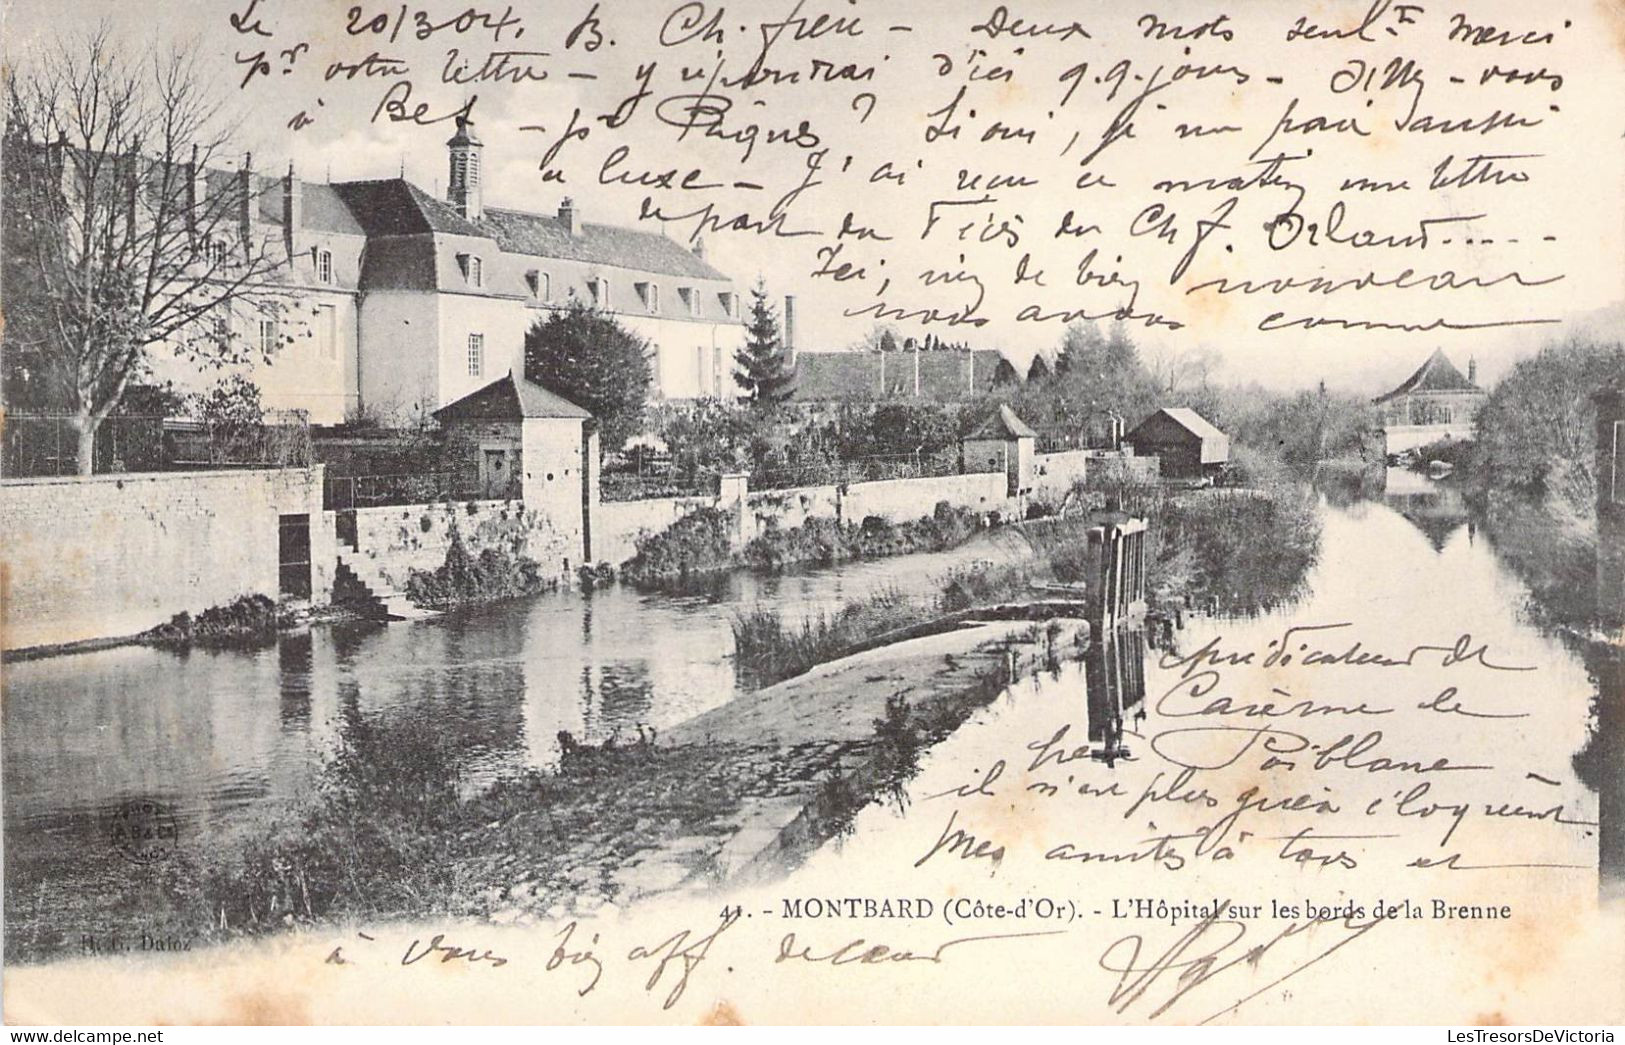 Le 20/3 04. B. Ch. frère - Deux mots seul.t merci
pr votre lettre - y répondrai d'ici q.q. jours - Allez-vous
à Bel - pr Pâques ? Si oui, je me paie aussi
ce luxe - J'ai reçu ce matin une lettre
de part du Ch f.
Ici, rien de bien nouveau
nous avons comme
prédicateur de
Carême le
père Poiblanc
il n'est plus guère éloquent.
Mes amitiés à tous et
à vous bien aff. de cœur
41. - MONTBARD (Côte-d'Or). - L'Hôpital sur les bords de la Brenne
LesTresorsDeVictoria